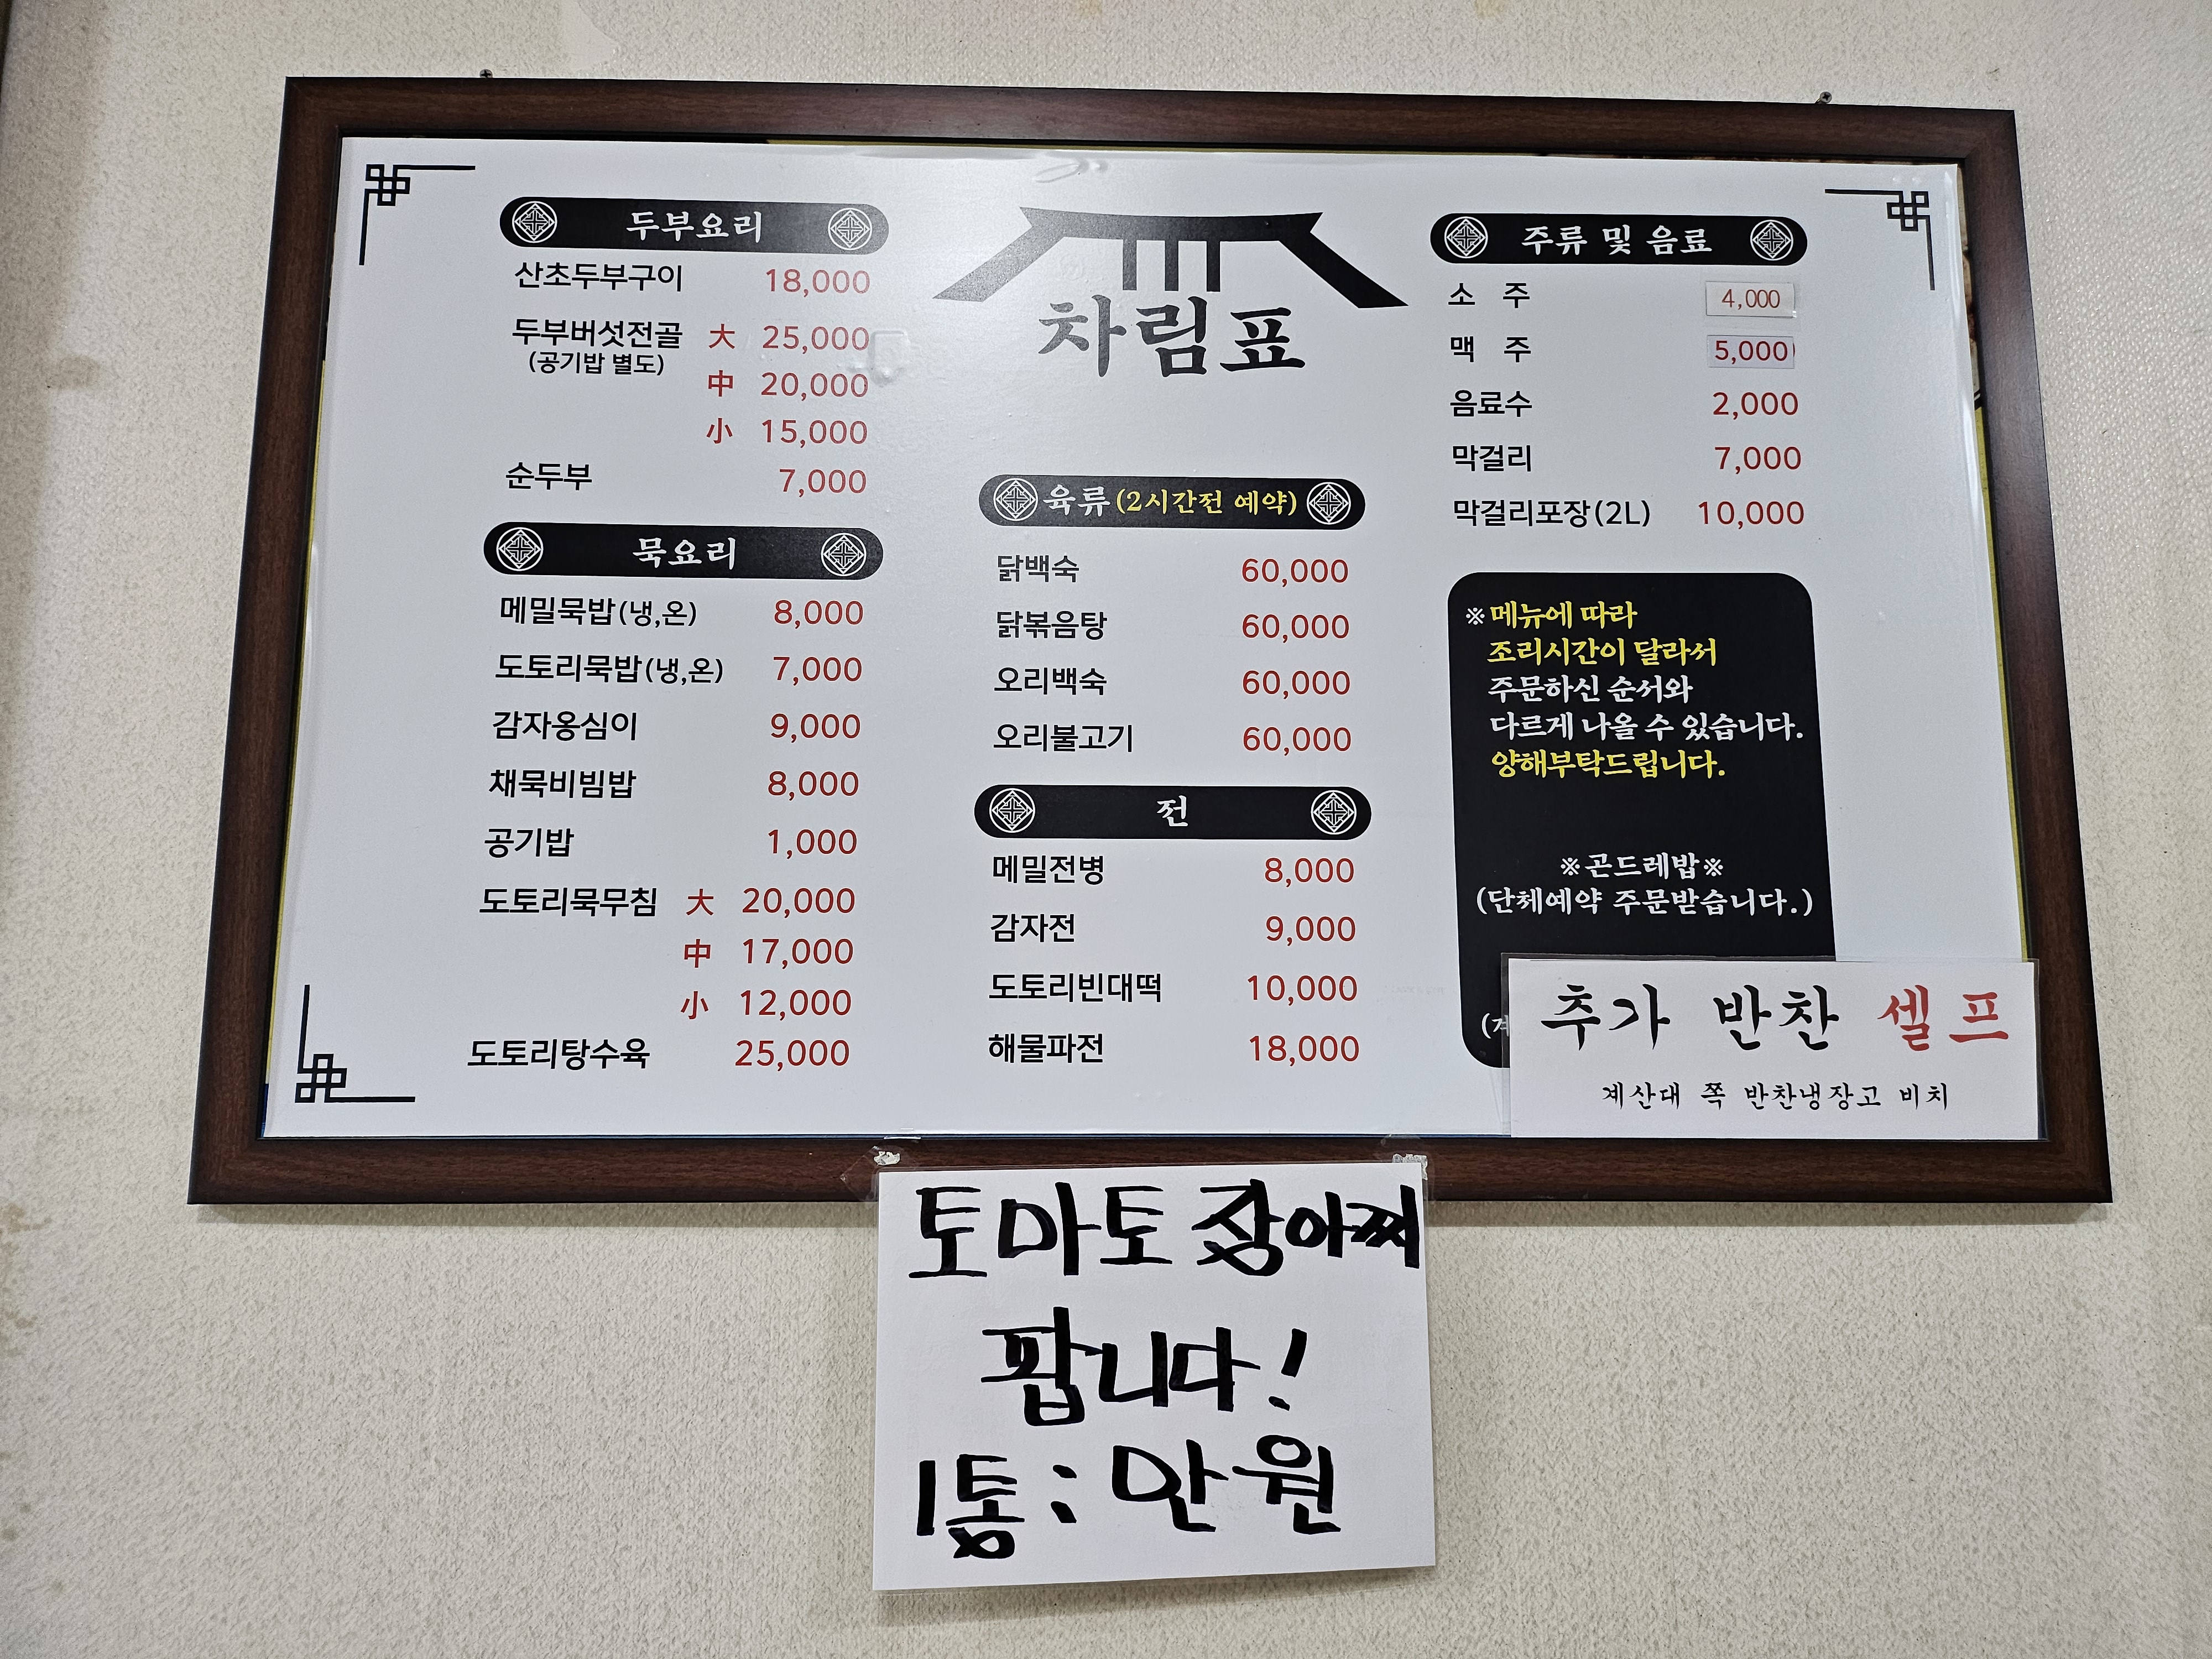 차림표
두부요리
산초두부구이 18,000
두부버섯전골 大 25,000
(공기밥 별도)
中 20,000
小 15,000
순두부 7,000
묵요리
메밀묵밥(냉,온) 8,000
도토리묵밥(냉,온) 7,000
감자옹심이 9,000
채묵비빔밥 8,000
공기밥 1,000
도토리묵무침 大 20,000
中 17,000
小 12,000
도토리탕수육 25,000
육류(2시간전 예약)
닭백숙 60,000
닭볶음탕 60,000
오리백숙 60,000
오리불고기 60,000
전
메밀전병 8,000
감자전 9,000
도토리빈대떡 10,000
해물파전 18,000
주류 및 음료
소 주 4,000
맥 주 5,000
음료수 2,000
막걸리 7,000
막걸리포장(2L) 10,000
※메뉴에 따라
조리시간이 달라서
주문하신 순서와
다르게 나올 수 있습니다.
양해부탁드립니다.
※곤드레밥※
(단체예약 주문받습니다.)
추가 반찬 셀프
계산대 쪽 반찬냉장고 비치
토마토 장아찌
팝니다!
1통 : 만원